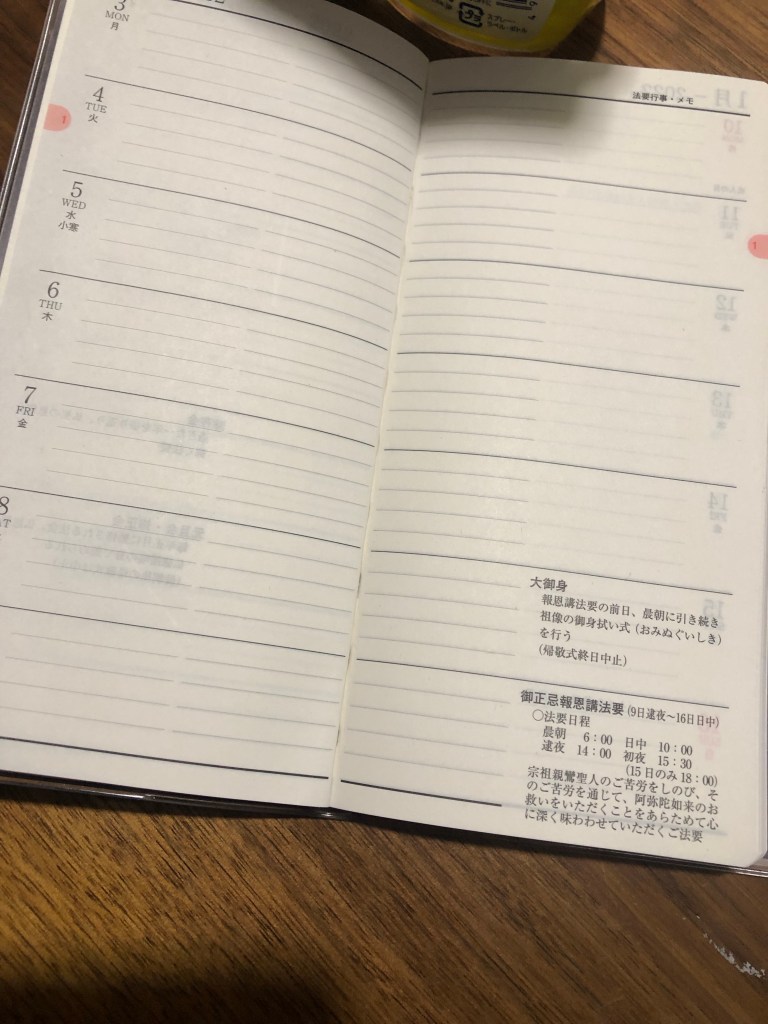 3
MON
月
4
TUE
火
1
5
WED
水
小寒
6
THU
木
7
FRI
金
8
法要行事・メモ
1
大御身
報恩講法要の前日、晨朝に引き続き
祖像の御身拭い式（おみぬぐいしき）
を行う
（帰敬式終日中止）
御正忌報恩講法要（9日逮夜～16日日中）
〇法要日程
晨朝 6：00 日中 10：00
逮夜 14：00 初夜 15：30
（15日のみ18：00）
宗祖親鸞聖人のご苦労をしのび、そ
のご苦労を通じて、阿弥陀如来のお
救いをいただくことをあらためて心
に深く味わわせていただくご法要
スプレー・
ラベル・ボトル